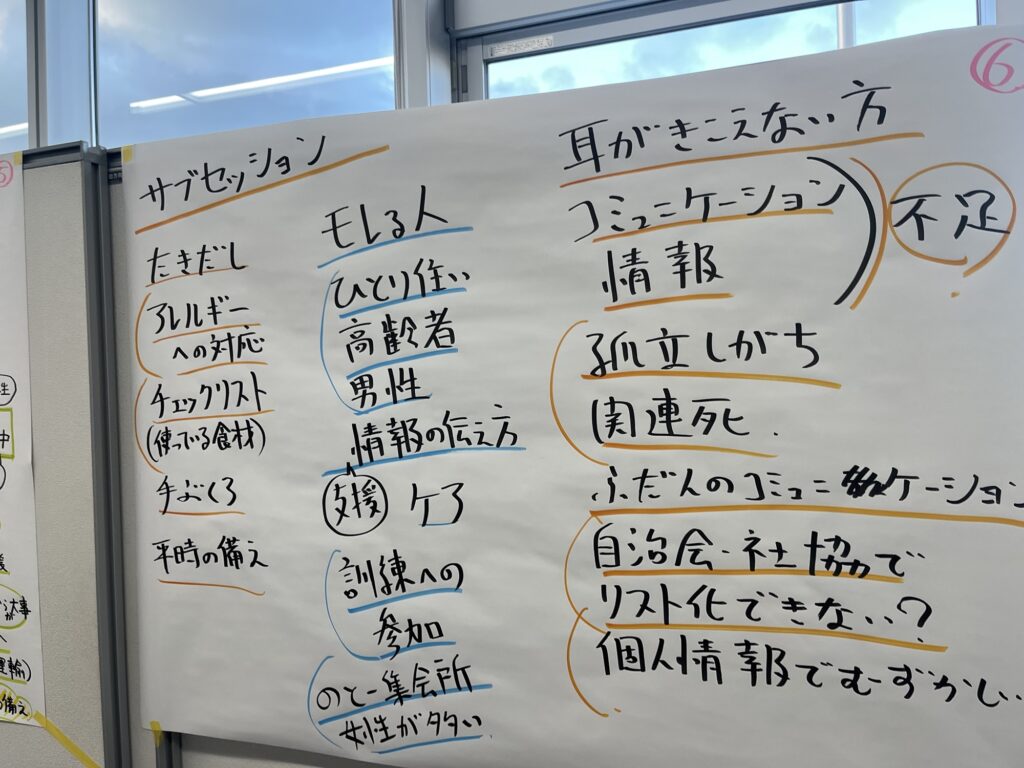 ⑥
サブセッション
たきだし
アレルギー
への対応
チェックリスト
(使っている食材)
手ぶくろ
平時の備え
モレる人
ひとり住い
高齢者
男性
情報の伝え方
支援 ケア
訓練への
参加
のとー集会所
女性が多い
耳がきこえない方
コミュニケーション
情報
不足
孤立しがち
関連死
ふだんのコミュニケーション
自治会・社協で
リスト化できない?
個人情報でむーずかしい
⑤
生
中
大事
備え